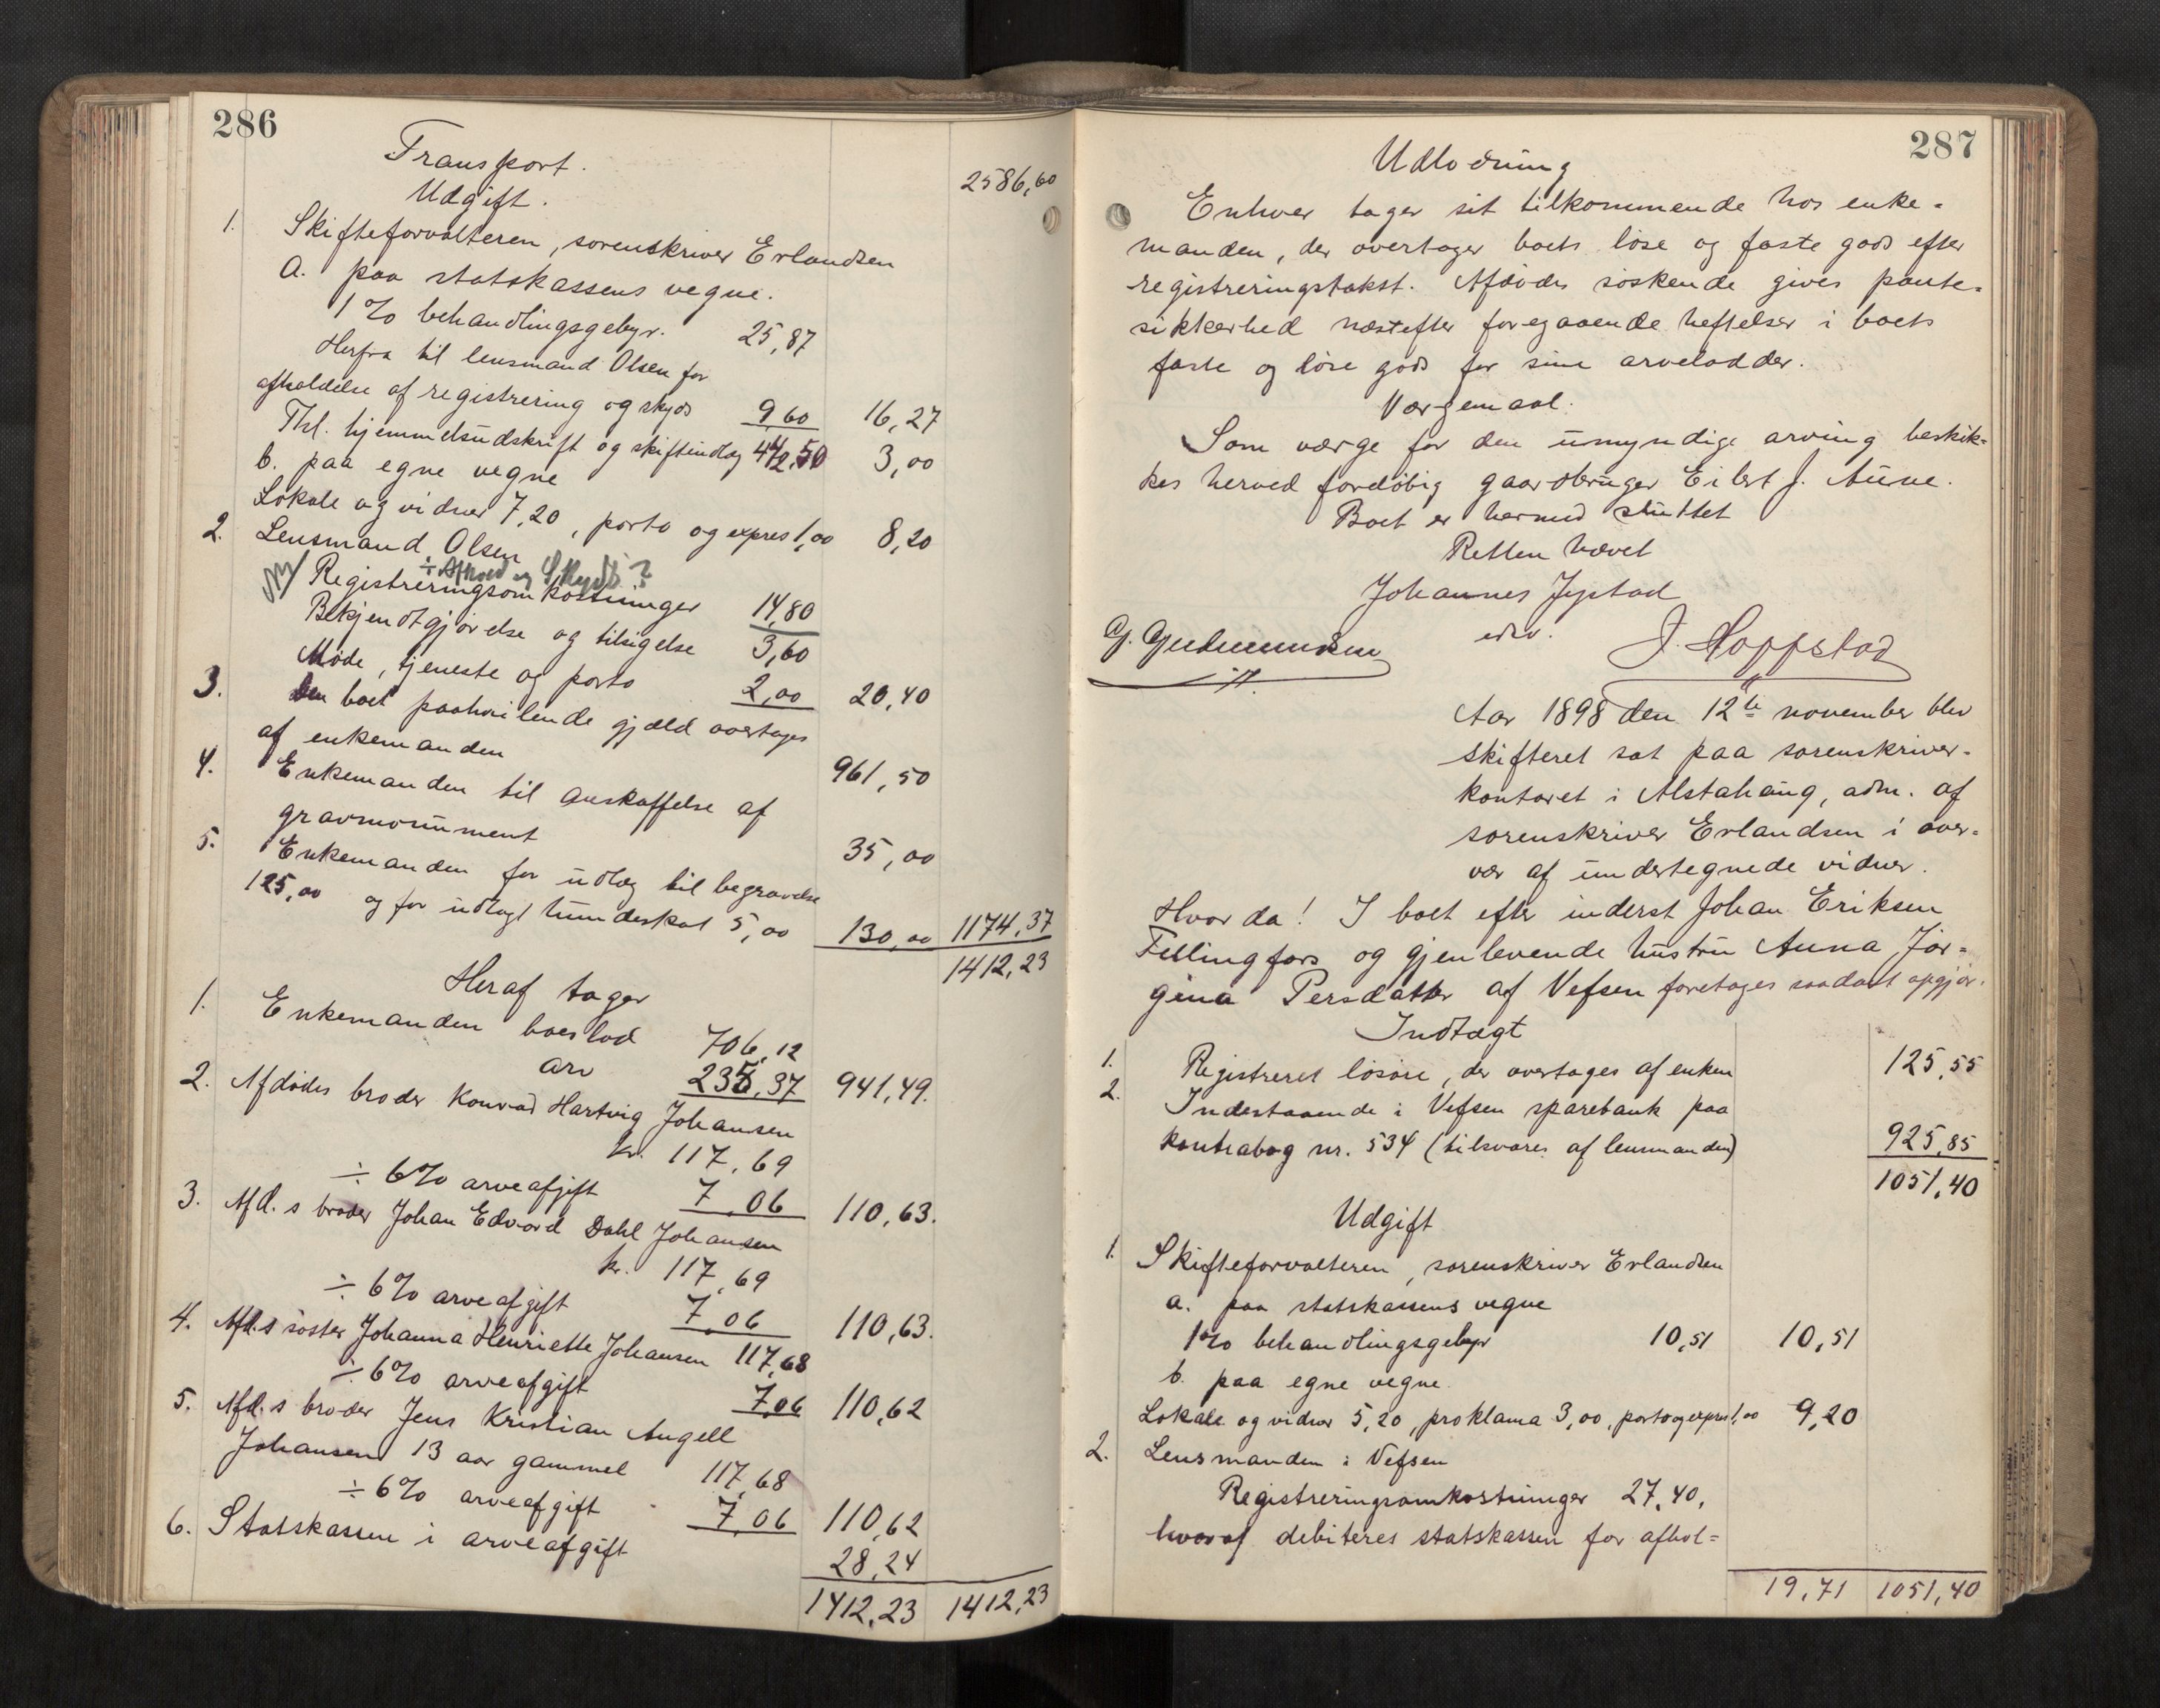 286
Transport.
2586,60
Udgift.
1. Skifteforvalteren, sorenskriver Erlandsen
a. paa statskassens vegne.
1% behandlingsgebyr. 25,87
Herfra til lensmand Olsen for
afholdelse af registrering og skyds 9,60 16,27
Thl. hjemmelsudskrift og skifteindlæg 3,00
b. paa egne vegne
Lokale og vidner 7,20, porto og expres 1,00 8,20
2. Lensmand Olsen
÷ Afhold og Skyds?
Registreringsomkostninger 14,80
Bekjendtgjørelse og tilsigelse 3,60
Møde, tjeneste og porto 2,00 20,40
3. Den boet paahvilende gjæld overtages
af enkemanden 961,50
4. Enkemanden til anskaffelse af
gravmonument 35,00
5. Enkemanden for udlæg til begravelse
125,00 og for udlagt hundeskat 5,00 130,00 1174,37
1412,23
Heraf tager
1. Enkemanden boeslod 706,12
arv 235,37 941,49.
2. Afdødes broder Konrad Hartvig Johansen
kr. 117,69
÷ 6% arveafgift 7,06 110,63.
3. Afd.s broder Johan Edvard Dahl Johansen
kr. 117,69
÷ 6% arveafgift 7,06 110,63.
4. Afd.s søster Johanna Henriette Johansen 117,68
÷ 6% arveafgift 7,06 110,62
5. Afd.s broder Jens Kristian Angell
Johansen 13 aar gammel 117,68
÷ 6% arveafgift 7,06 110,62
6. Statskassen i arveafgift 28,24
1412,23 1412,23
287
Udlodning
Enhver tager sit tilkommende hos enke-
manden, der overtager boets løse og faste gods efter
registreringstakst. Afdødes søskende gives pante-
sikkerhed næstefter foregaaende heftelser i boets
faste og løse gods for sine arvelodder.
Værgemaal.
Som værge for den umyndige arving beskik-
kes herved foreløbig gaardbruger Eilert J. Aune.
Boet er hermed sluttet
Retten hævet
Johannes Jystad
edsv.
G. Gudmundsen
J. Hoppstad
Aar 1898 den 12te november blev
skifteret sat paa sorenskriver-
kontoret i Alstahaug, adm. af
sorenskriver Erlandsen i over-
vær af undertegnede vidner.
Hvorda! I boet efter inderst Johan Eriksen
Fellingfors og gjenlevende hustru Anna Jør-
gina Persdatter af Vefsen foretages saadant opgjør.
Indtægt
1. Registreret løsøre, der overtages af enken 125,55
2. Indestaaende i Vefsen sparebank paa
kontrabog nr. 534 (tilsvares af lensmanden) 925,85
1051,40
Udgift
1. Skifteforvalteren, sorenskriver Erlandsen
a. paa statskassens vegne
1% behandlingsgebyr 10,51 10,51
b. paa egne vegne.
Lokale og vidner 5,20, proklama 3,00, porto og expres 1,00 9,20
2. Lensmanden i Vefsen
Registreringsomkostninger 27,40,
hvoraf debiteres statskassen for afhol-
19,71 1051,40